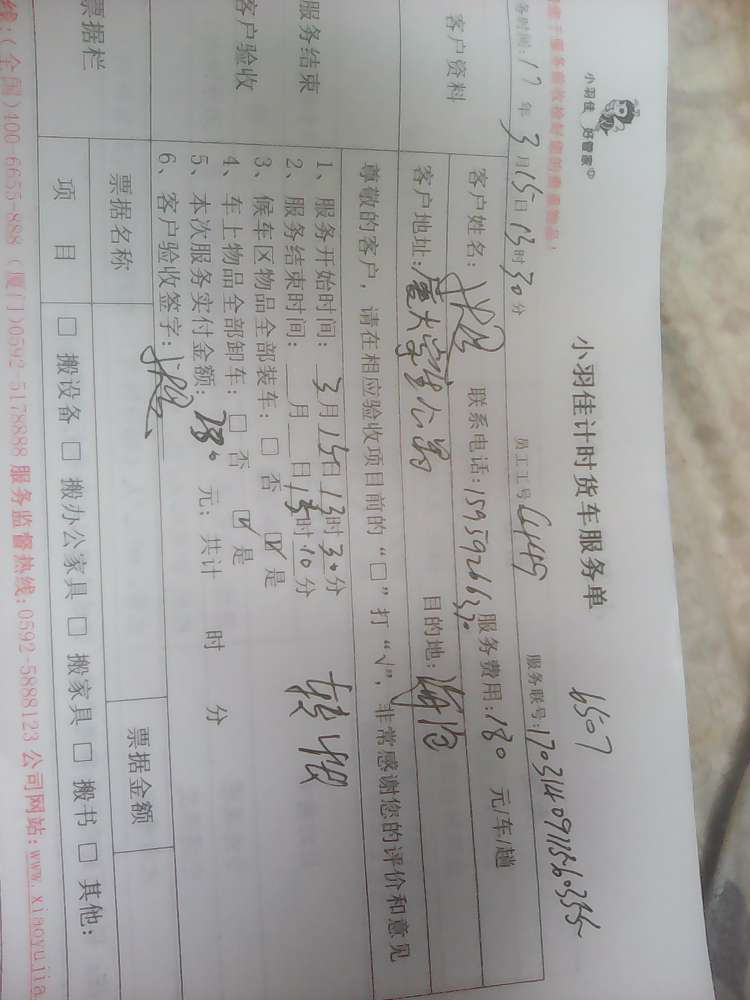 小羽佳 好管家
小羽佳计时货车服务单
6507
务时间:17年3月15日13时30分
员工工号
服务联号:
客户资料
客户姓名:
联系电话:
服务费用:180元/车/趟
客户地址:厦大学生公寓
目的地:海沧
尊敬的客户，请在相应验收项目前的“□”打“√”，非常感谢您的评价和意见
服务结束
客户验收
1、服务开始时间:3月15日13时30分
2、服务结束时间:__月__日15时10分
3、候车区物品全部装车:□否 ☑是
4、车上物品全部卸车:□否 ☑是
5、本次服务实付金额:180元；共计 时 分
6、客户验收签字:
转账
票据栏
票据名称
票据金额
项目
□搬设备 □搬办公家具 □搬家具 □搬书 □其他:
线:(全国)400-6655-888 (厦门)0592-5178888 服务监督热线:0592-5888123 公司网站:www.xiaoyujia